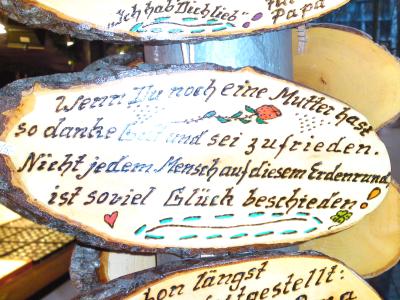 „Ich hab' Dich lieb"
für
Papa
Wenn Du noch eine Mutter hast
so danke Gott und sei zufrieden.
Nicht jedem Mensch auf diesem Erdenrund,
ist soviel Glück beschieden!
schon längst